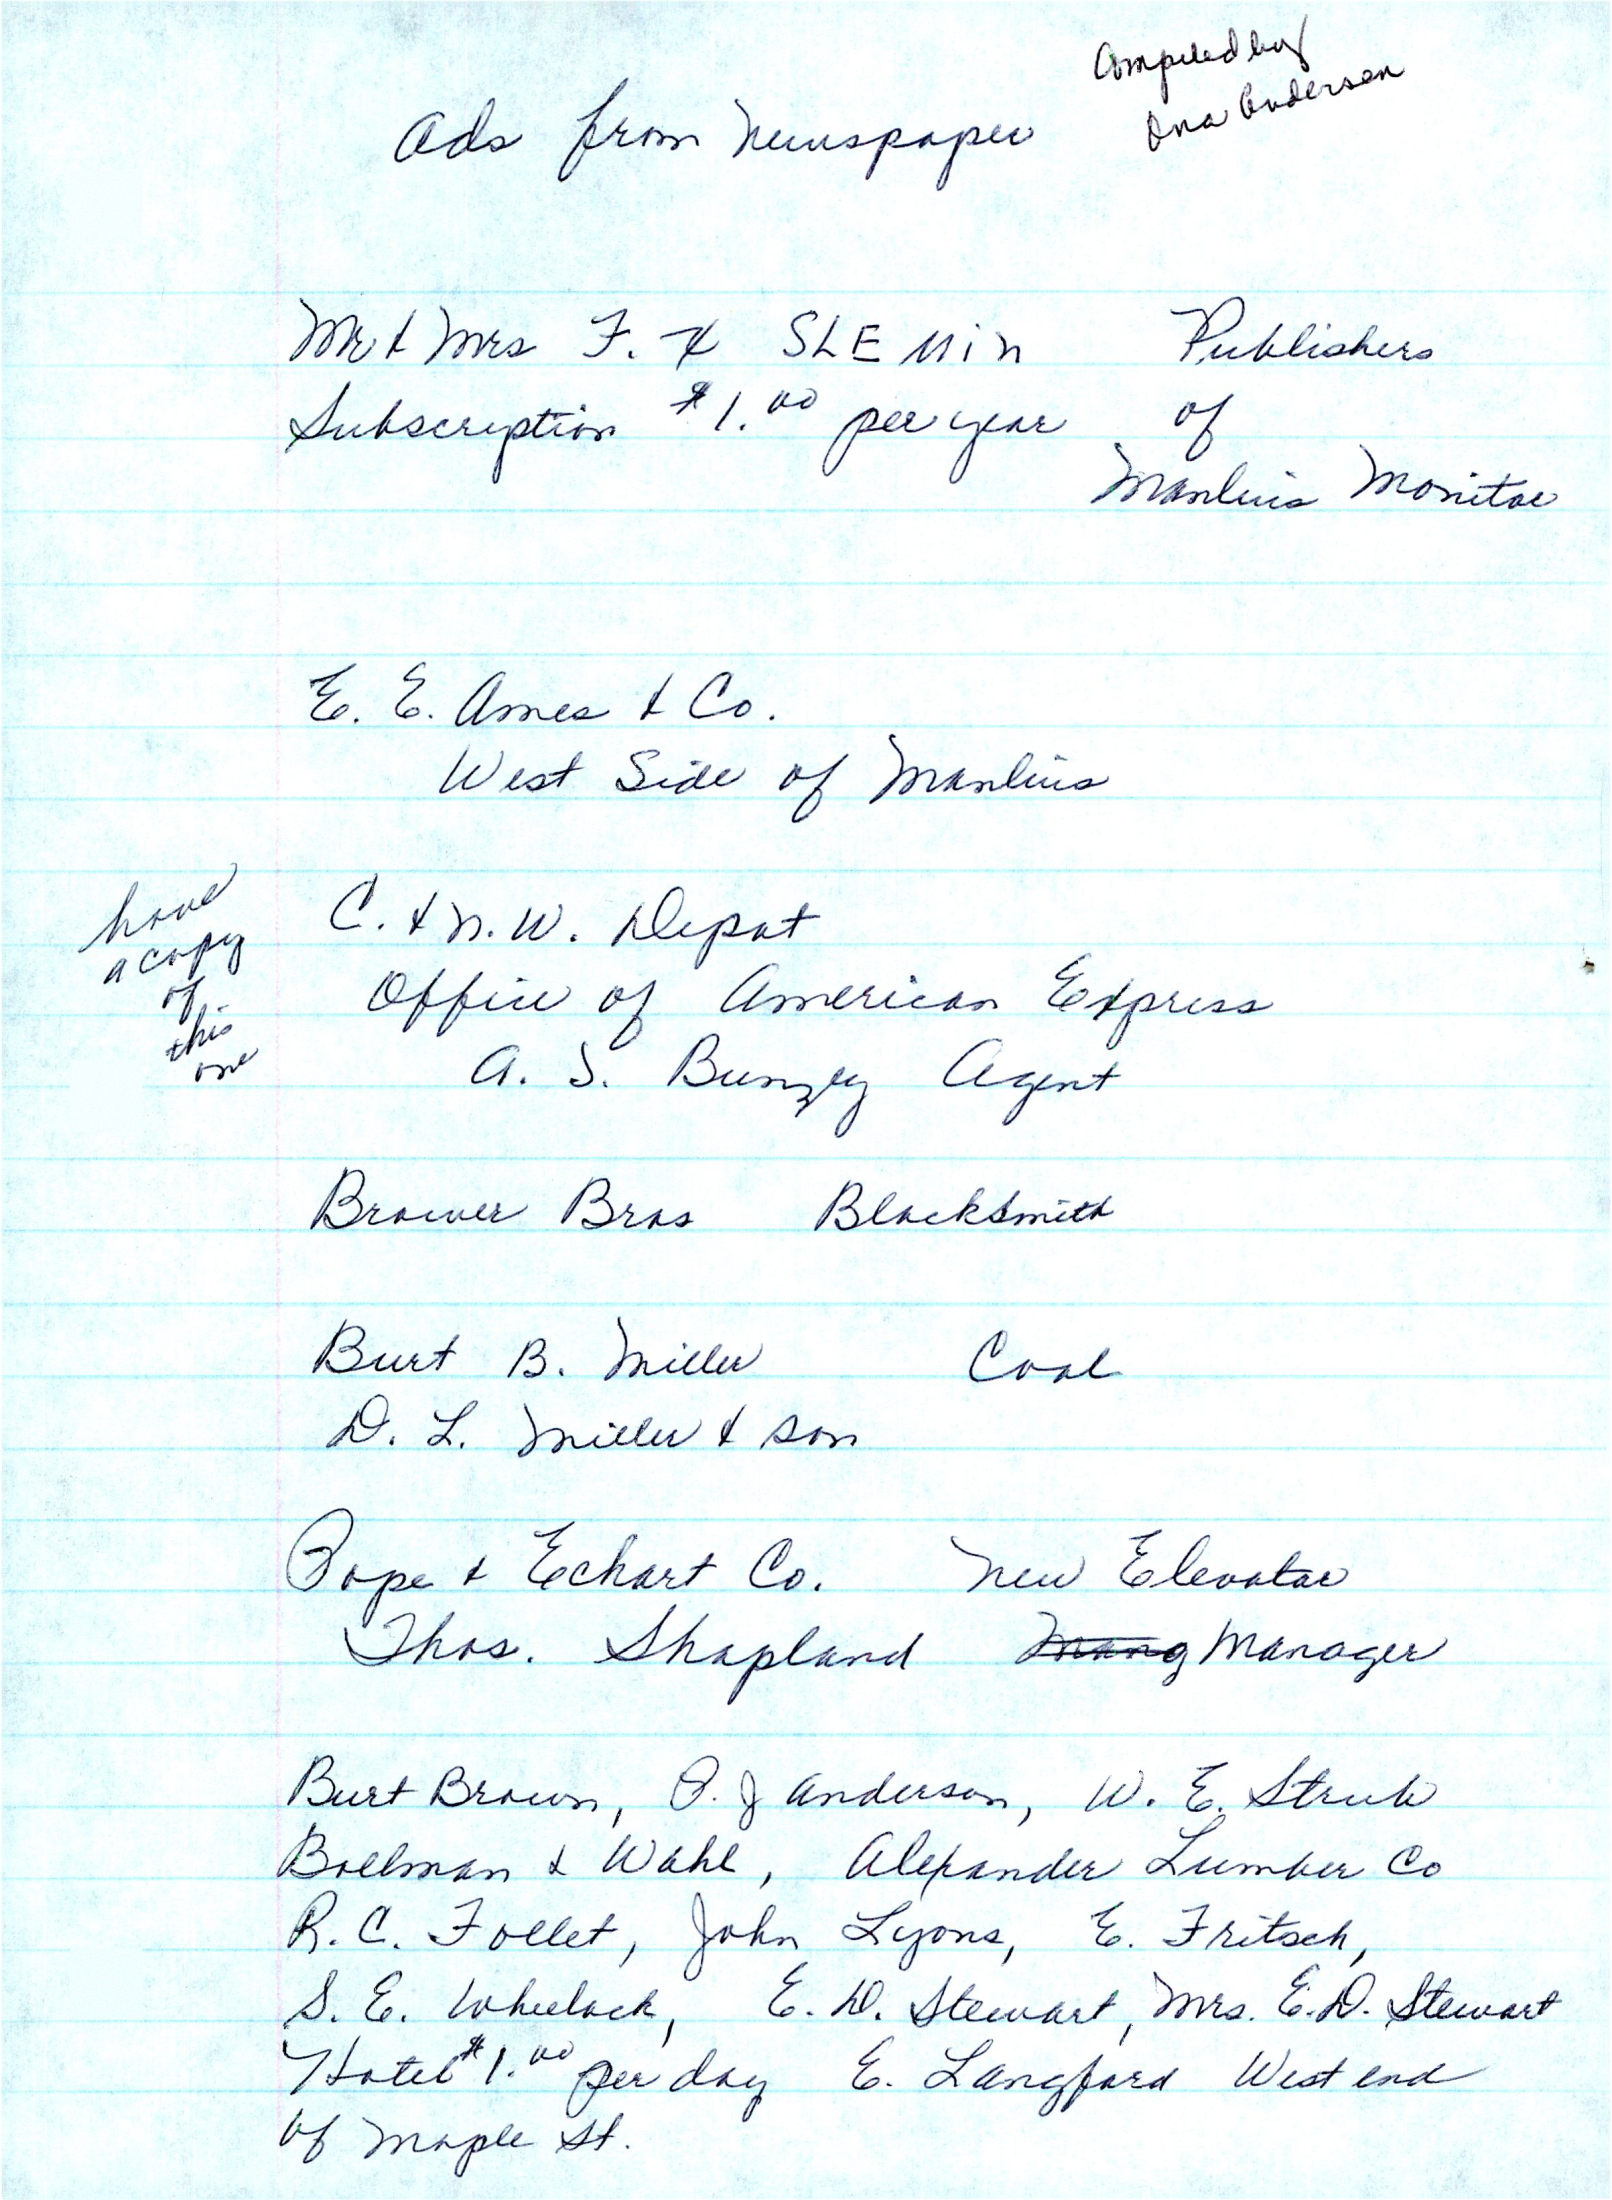 Compiled by
Ina Anderson
Ads from Newspaper
Mr & Mrs F. H SLEMin Publishers
Subscription $1.00 per year of
Manlius Monitor
E. E. Ames & Co.
West Side of Manlius
have
a copy
of
this
one
C. & N. W. Depot
Office of American Express
A. S. Bunzey Agent
Brower Bros Blacksmith
Burt B. Miller Coal
D. L. Miller & Son
Pope & Eckart Co. New Elevator
Thos. Shapland Mang Manager
Burt Brown, O. J Anderson, W. E. Strub
Bollman & Wahl, Alexander Lumber Co
R. C. Follet, John Lyons, E. Fritsch,
S. E. Wheelock, E. D. Stewart, Mrs. E. D. Stewart
Hotel $1.00 per day E. Langford West end
of Maple St.